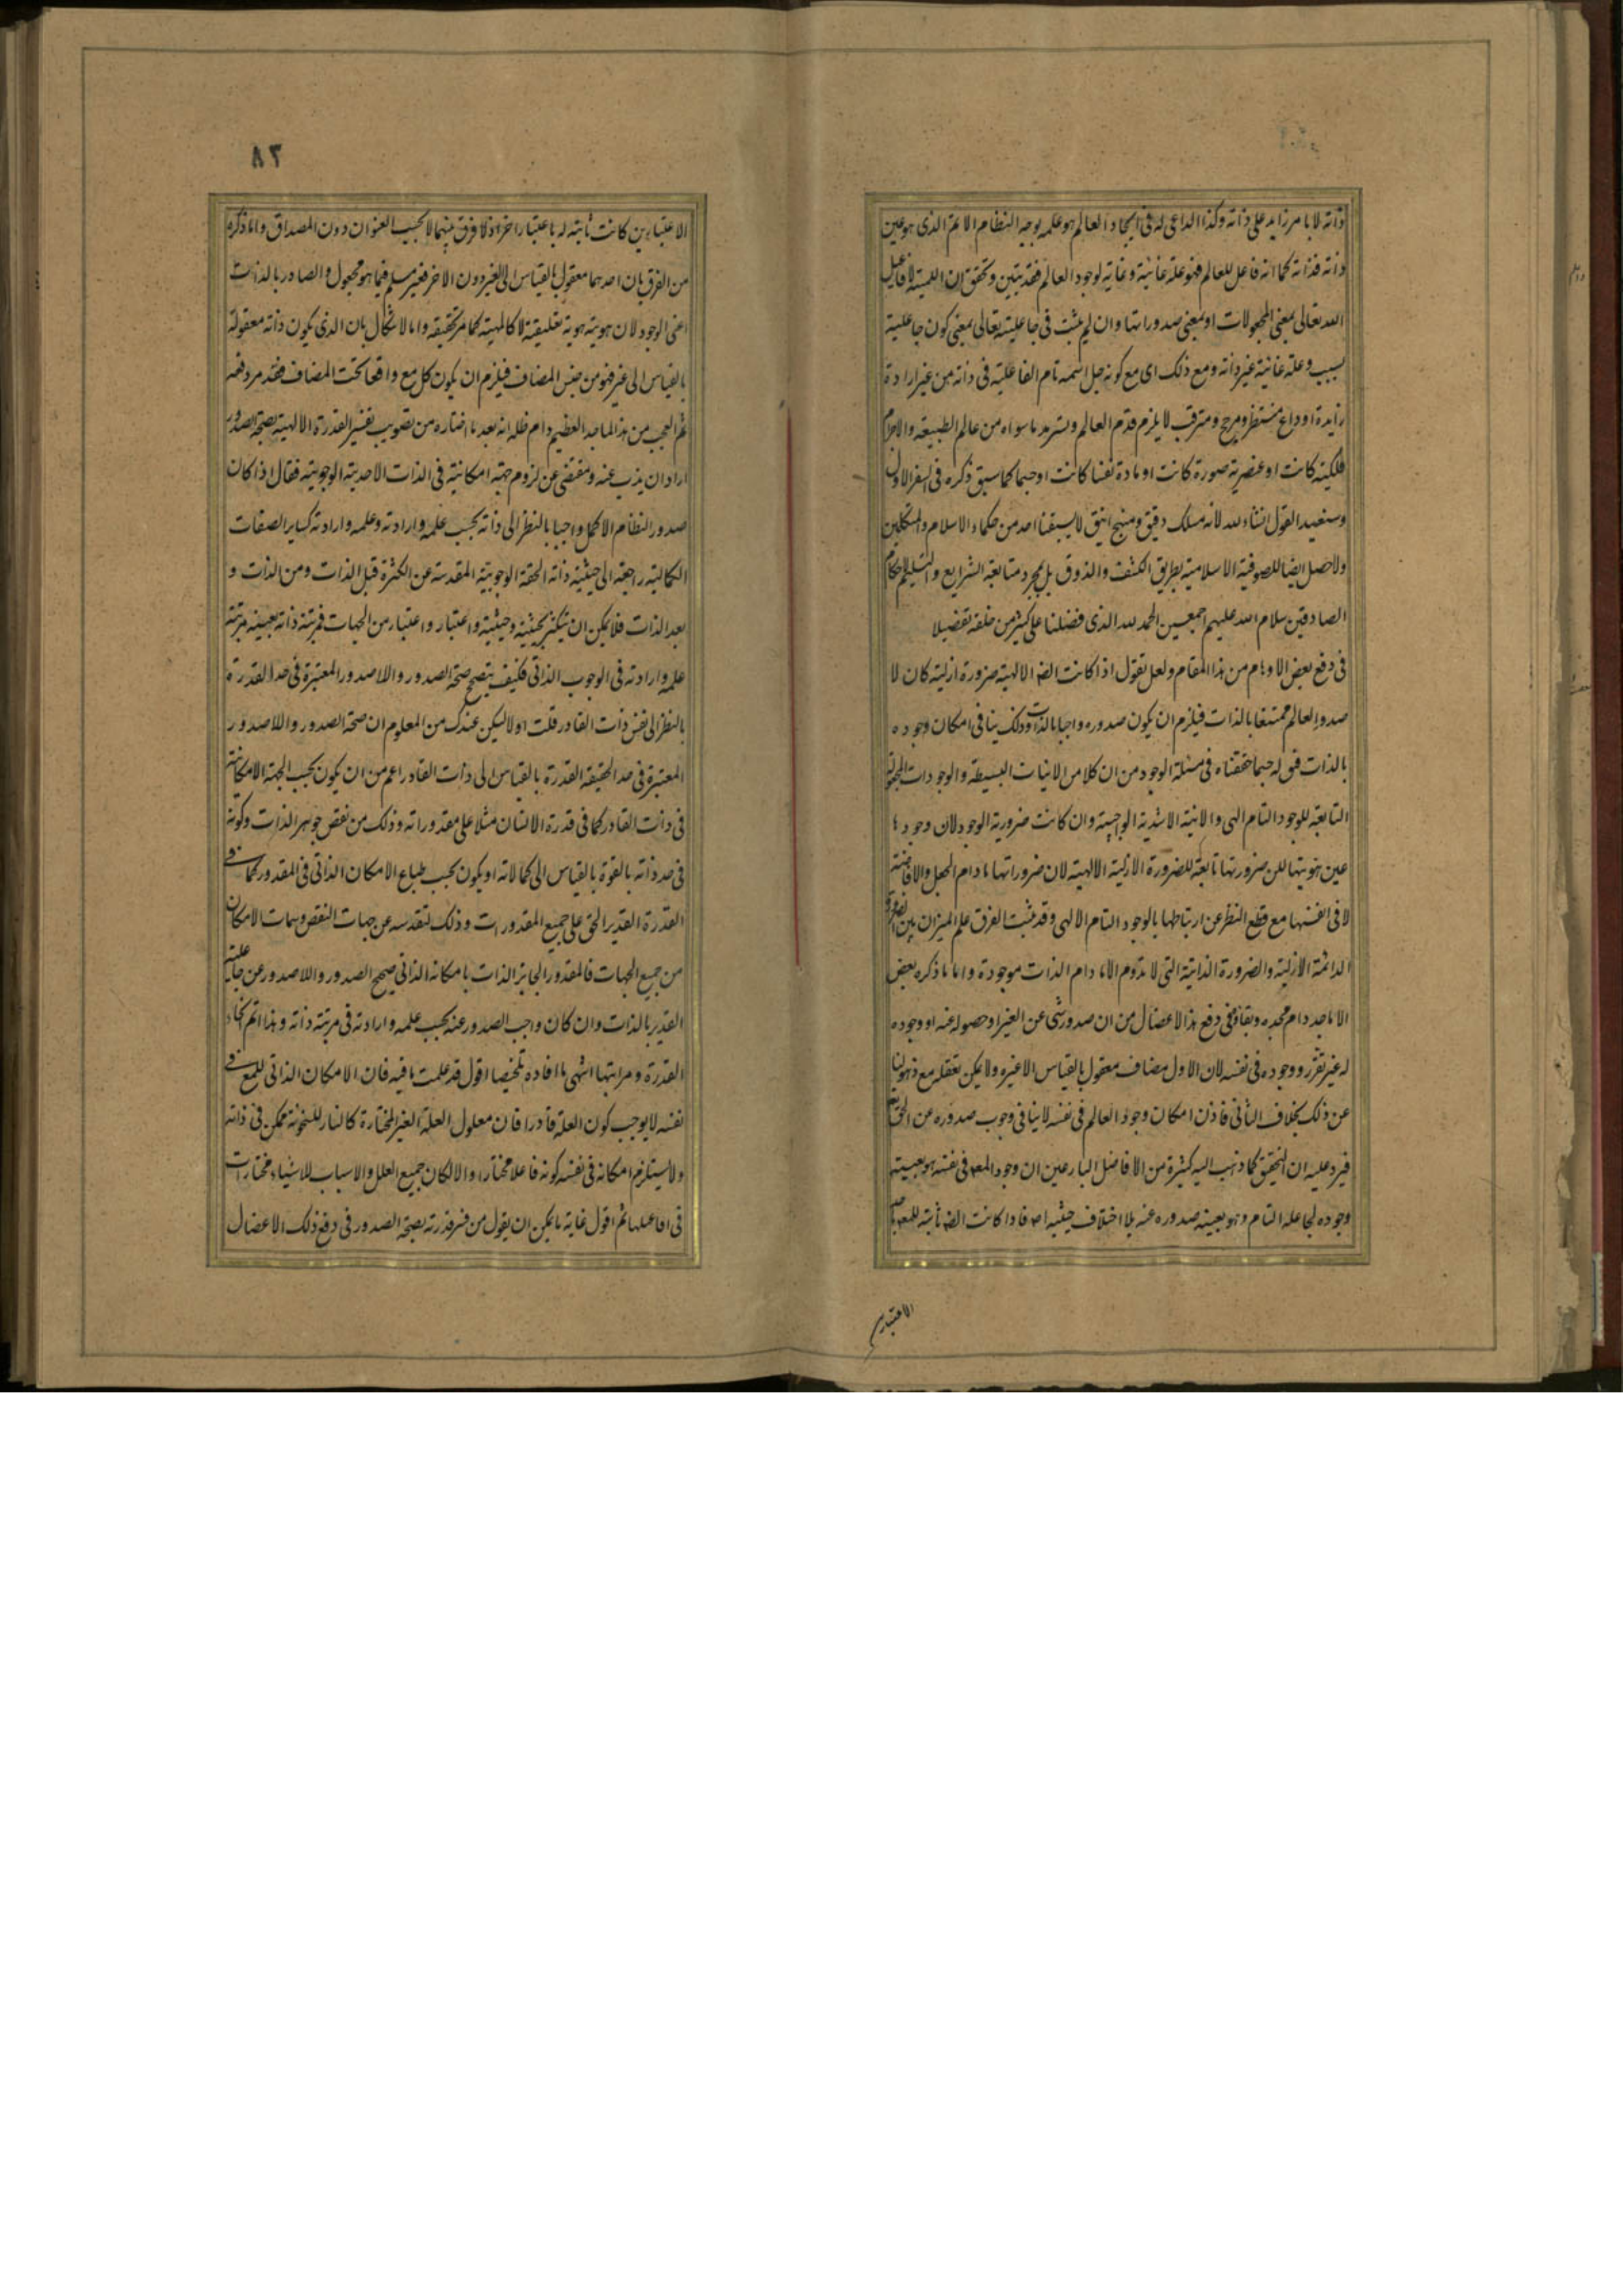 ذاته لا بامر زايد على ذاته وكذا الداعى له فى ايجاد العالم هو علمه بوجه النظام الاتم الذى هو عين
ذاته فذاته كما انه فاعل للعالم فهو علة غائية وغاية لوجود العالم فقد تبين وتحقق ان اللمية لافاعيل
الله تعالى بمعنى المجعولات او بمعنى صدوراتها وان لم يثبت فى جاعليته تعالى بمعنى كون جاعليته
بسبب وعلة غائية غير ذاته ومع ذلك اى مع كونه جل اسمه تام الفاعلية فى ذاته من غير ارادة
زايدة او داع منتظر ومرجح ومترقب لا يلزم قدم العالم وتسرمد ما سواه من عالم الطبيعة والاجرام
فلكية كانت او عنصرية صورة كانت او مادة نفسا كانت او جسما كما سبق ذكره فى السفر الاول
وسنعيد القول انشاء الله لانه مسلك دقيق ومنهج انيق لا يسبقنا احد من حكماء الاسلام والمتكلمين
ولا حصل ايضا للصوفية الاسلامية بطريق الكشف والذوق بل بمجرد متابعة الشرايع والتسليم لاحكام
الصادقين سلام الله عليهم اجمعين الحمد لله الذى فضلنا على كثير من خلقه تفضيلا
فى دفع بعض الاوهام من هذا المقام ولعل تقول اذا كانت الضه الالهية ضرورة ازلية كان لا
صدور العالم ممتنعا بالذات فيلزم ان يكون صدوره واجبا بالذات وذلك ينافى امكان وجوده
بالذات فق له حسبما حققناه فى مسئلة الوجود من ان كلا من الانيات البسيطة والوجودات المجعولة
التابعة للوجود التام الهى والانية الاشدية الواجبية وان كانت ضرورية الوجود لان وجودها
عين هويتها لكن ضرورتها تابعة للضرورة الازلية الالهية لان ضروراتها ما دام الجعل والافاضة
لا فى انفسها مع قطع النظر عن ارتباطها بالوجود التام الالهى وقد يثبت الفرق علم الميزان بين الضرورة
الدائمة الازلية والضرورة الذاتية التى لا تدوم الا ما دام الذات موجودة واما ما ذكره بعض
الاماجد دام مجده وبقاؤه فى دفع هذا الاعضال من ان صدور شى عن الغير او حصوله عنه او وجوده
له غير تقرره ووجوده فى نفسه لان الاول مضاف معقول بالقياس الا غيره ولا يمكن تعقله مع ذهولنا
عن ذلك بخلاف الثانى فاذن امكان وجود العالم فى نفسه لا ينافى وجوب صدوره عن الحق تعالى
فيرد عليه ان التحقيق كما ذهب اليه كثيرة من الافاضل البارعين ان وجود المعه فى نفسه هو بعينه
وجوده لجاعله التام وهو بعينه صدوره عنه بلا اختلاف حيثيه اصه فاذا كانت الضه ثابتة للمعه باحد
الاعتبارين
٨٢
الاعتبارين كانت ثابته له باعتبار اخر اذ لا فرق بينهما الا بحسب العنوان دون المصداق واما ذكره
من الفرق بان احدهما معقول بالقياس الى الغير دون الاخر فغير مسلم فيما هو مجعول والصادر بالذات
اعنى الوجود لان هويته هوية تعليقية لا كالمهية كما مر تحقيقه واما الاشكال بان الذى يكون ذاته معقولة
بالقياس الى غير فهو من جنس المضاف فيلزم ان يكون كل مع واقعا تحت المضاف فقد مر دفعه
ثم العجب من هذا الماجد العظيم دام ظله انه بعد ما اختاره من تصويب تفسير القدرة الالهية بصحة الصدور
اراد ان يذب عنه ومفتضى عن لزوم جهة امكانية فى الذات الاحدية الوجوبية فقال اذا كان
صدور النظام الاكمل واجبا بالنظر الى ذاته بحسب علمه وارادته وعلمه وارادته كساير الصفات
الكمالية راجعة الى حيثية ذاته الحقة الوجوبية المقدسة عن الكثرة قبل الذات ومن الذات و
بعد الذات فلا يمكن ان يتكثر بحيثية وحيثية واعتبار واعتبار من الجهات فمرتبة ذاته بعينه مرتبة
علمه وارادته فى الوجوب الذاتى فكيف يتصحح صحة الصدور واللاصدور المعتبرة فى حد القدرة
بالنظر الى نفس ذات القادر قلت اولا ليكن عندك من المعلوم ان صحة الصدور واللاصدور
المعتبرة فى حد الحقيقة القدرة بالقياس الى ذات القادر اعم من ان يكون بحسب الجهة الامكانية
فى ذات القادر كما فى قدرة الانسان مثلا على مقدوراته وذلك من نقص جوهر الذات وكونه
فى حد ذاته بالقوة بالقياس الى كمالاته او يكون بحسب طباع الامكان الذاتى فى المقدور كما فى
القدرة القدير الحق على جميع المقدورات وذلك لتقدسه عن جهات النقص وسمات الامكان
من جميع الجهات فالمقدور الجايز الذات بامكانه الذاتى صحيح الصدور واللاصدور عن جاعلية
القدير بالذات وان كان واجب الصدور عنه بحسب علمه وارادته فى مرتبة ذاته وهذا اتم انحاء
القدرة ومراتبها انتهى ما افاده تلخيصا اقول قد علمت ما فيه فان الامكان الذاتى للمع فى
نفسه لا يوجب كون العلة قادرا فان معلول العلة الغير المختارة كالنار للسخونة ممكن فى ذاته
ولا يستلزم امكانه فى نفسه كونه فاعلا مختارا والا لكان جميع العلل والاسباب للاشياء مختارات
فى افاعيلها ثم اقول غاية ما يمكن ان يقول من فسر قدرته بصحة الصدور فى دفع ذلك الاعضال